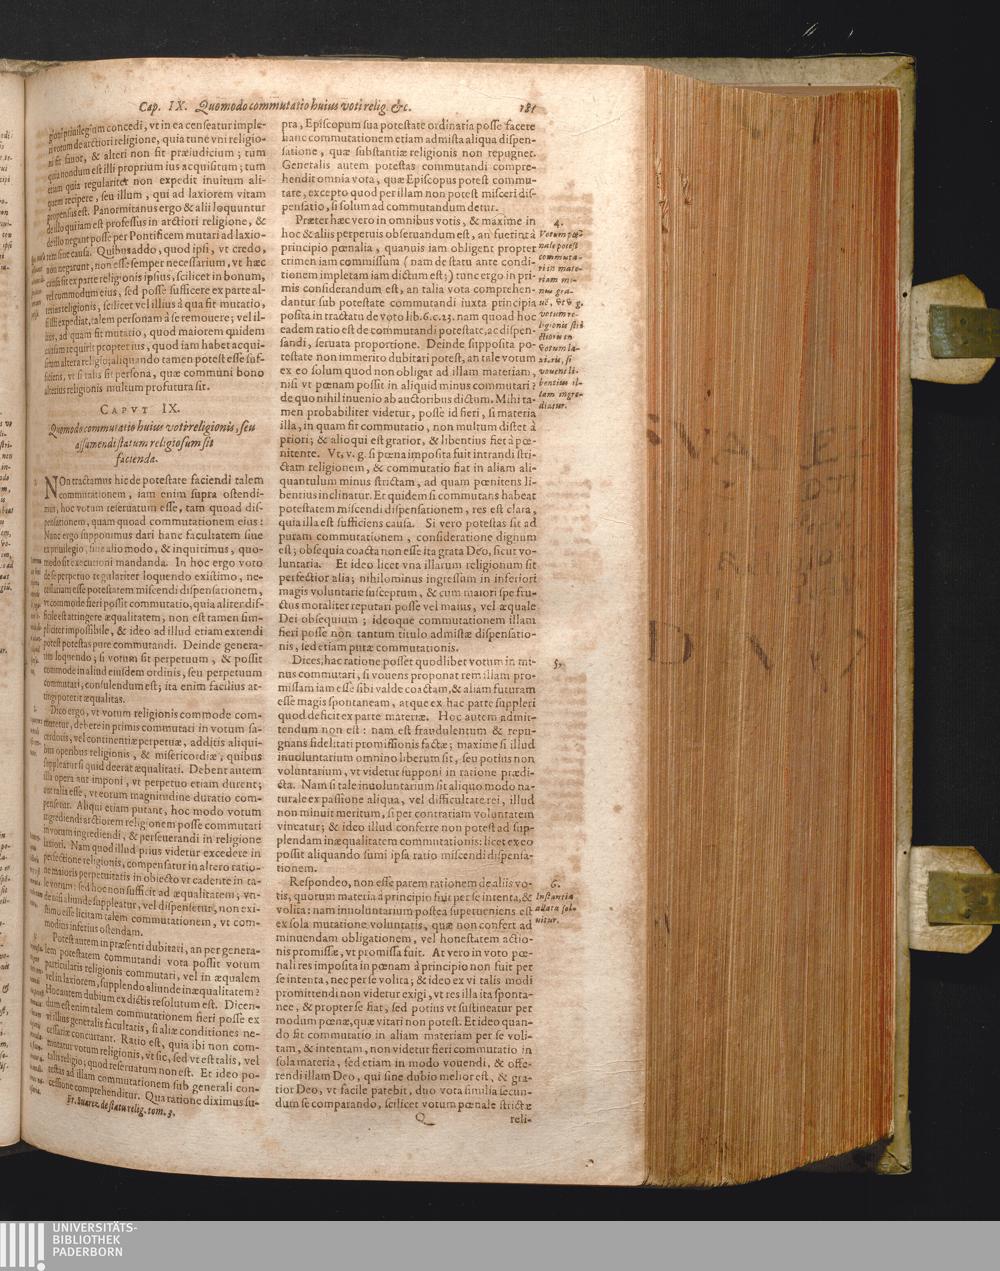 Cap. IX. Quomodo commutatio huius voti relig. &c. 181
gioni priuilegium concedi, vt in ea censeatur imple-
ri votum de arctiori religione, quia tunc vni religio-
ni fit fauor, & alteri non fit præiudicium; tum
quia nondum est illi proprium ius acquisitum; tum
etiam quia regulariter non expedit inuitum ali-
quem recipere, seu illum, qui ad laxiorem vitam
propensus est. Panormitanus ergo & alii loquuntur
de illo qui iam est professus in arctiori religione, &
de illo negant posse per Pontificem mutari ad laxio-
rem sine causa. Quibus addo, quod ipsi, vt credo,
non negarunt, non esse semper necessarium, vt hæc
causa sit ex parte religionis ipsius, scilicet in bonum,
vel commodum eius, sed posse sufficere ex parte al-
terius religionis, scilicet vel illius à qua fit mutatio,
si illi expediat, talem personam à se remouere; vel il-
lius, ad quam fit mutatio, quod maiorem quidem
causam requirit propter ius, quod iam habet acqui-
situm altera religio; aliquando tamen potest esse suf-
ficiens, vt si talis sit persona, quæ communi bono
alterius religionis multum profutura sit.
CAPVT IX.
Quomodo commutatio huius voti religionis, seu
assumendi statum religiosum sit
facienda.
NOn tractamus hic de potestate faciendi talem
commutationem, iam enim supra ostendi-
mus, hoc votum reseruatum esse, tam quoad dis-
pensationem, quam quoad commutationem eius:
Nunc ergo supponimus dari hanc facultatem siue
ex priuilegio, siue alio modo, & inquirimus, quo-
modo sit executioni mandanda. In hoc ergo voto
de se perpetuo regulariter loquendo existimo, ne-
cessariam esse potestatem miscendi dispensationem,
vt commode fieri possit commutatio, quia aliter dif-
ficile est attingere æqualitatem, non est tamen sim-
pliciter impossibile, & ideo ad illud etiam extendi
potest potestas pure commutandi. Deinde genera-
tim loquendo; si votum sit perpetuum, & possit
commode in aliud eiusdem ordinis, seu perpetuum
commutari, consulendum est; ita enim facilius at-
tingi poterit æqualitas.
Dico ergo, vt votum religionis commode com-
mutetur, debere in primis commutari in votum sa-
cerdotis, vel continentiæ perpetuæ, additis aliqui-
bus operibus religionis, & misericordiæ, quibus
suppleatur si quid deerat æqualitati. Debent autem
illa opera aut imponi, vt perpetuo etiam durent;
aut talia esse, vt eorum magnitudine duratio com-
pensetur. Aliqui etiam putant, hoc modo votum
ingrediendi arctiorem religionem posse commutari
in votum ingrediendi, & perseuerandi in religione
laxiori. Nam quod illud prius videtur excedere in
perfectione religionis, compensatur in altero ratio-
ne maioris perpetuitatis in obiecto vt cadente in ta-
le votum: sed hoc non sufficit ad æqualitatem; vn-
de nisi aliunde suppleatur, vel dispensetur, non exi-
stimo esse licitam talem commutationem, vt com-
modius inferius ostendam.
Potest autem in præsenti dubitari, an per genera-
lem potestatem commutandi vota possit votum
particularis religionis commutari, vel in æqualem
vel in laxiorem, supplendo aliunde inæqualitatem?
Hoc autem dubium ex dictis resolutum est. Dicen-
dum est enim talem commutationem fieri posse ex
vi illius generalis facultatis, si aliæ conditiones ne-
cessariæ concurrant. Ratio est, quia ibi non com-
mutatur votum religionis, vt sic, sed vt est talis, vel
talis religio; quod reseruatum non est. Et ideo po-
testas ad illam commutationem sub generali con-
cessione comprehenditur. Qua ratione diximus su-
Fr. Suarez de statu relig. tom. 3.
pra, Episcopum sua potestate ordinaria posse facere
hanc commutationem etiam admista aliqua dispen-
satione, quæ substantiæ religionis non repugnet.
Generalis autem potestas commutandi compre-
hendit omnia vota, quæ Episcopus potest commu-
tare, excepto quod per illam non potest misceri dis-
pensatio, si solum ad commutandum detur.
Præter hæc vero in omnibus votis, & maxime in
hoc & aliis perpetuis obseruandum est, an fuerint à
principio pœnalia, quamuis iam obligent propter
crimen iam commissum (nam de statu ante condi-
tionem impletam iam dictum est;) tunc ergo in pri-
mis considerandum est, an talia vota comprehen-
dantur sub potestate commutandi iuxta principia
posita in tractatu de voto lib. 6. c. 23. nam quoad hoc
eadem ratio est de commutandi potestate, ac dispen-
sandi, seruata proportione. Deinde supposita po-
testate non immerito dubitari potest, an tale votum
ex eo solum quod non obligat ad illam materiam,
nisi vt pœnam possit in aliquid minus commutari?
de quo nihil inuenio ab auctoribus dictum. Mihi ta-
men probabiliter videtur, posse id fieri, si materia
illa, in quam fit commutatio, non multum distet à
priori; & alioqui est gratior, & libentius fiet à pœ-
nitente. Vt, v. g. si pœna imposita fuit intrandi stri-
ctam religionem, & commutatio fiat in aliam ali-
quantulum minus strictam, ad quam pœnitens li-
bentius inclinatur. Et quidem si commutans habeat
potestatem miscendi dispensationem, res est clara,
quia illa est sufficiens causa. Si vero potestas sit ad
puram commutationem, consideratione dignum
est; obsequia coacta non esse ita grata Deo, sicut vo-
luntaria. Et ideo licet vna illarum religionum sit
perfectior alia; nihilominus ingressum in inferiori
magis voluntarie susceptum, & cum maiori spe fru-
ctus moraliter reputari posse vel maius, vel æquale
Dei obsequium; ideoque commutationem illam
fieri posse non tantum titulo admistæ dispensatio-
nis, sed etiam putæ commutationis.
Dices, hac ratione posset quodlibet votum in mi-
nus commutari, si vouens proponat rem illam pro-
missam iam esse sibi valde coactam, & aliam futuram
esse magis spontaneam, atque ex hac parte suppleri
quod deficit ex parte materiæ. Hoc autem admit-
tendum non est: nam est fraudulentum & repu-
gnans fidelitati promissionis factæ; maxime si illud
inuoluntarium omnino liberum sit, seu potius non
voluntarium, vt videtur supponi in ratione prædi-
cta. Nam si tale inuoluntarium sit aliquo modo na-
turale ex passione aliqua, vel difficultate rei, illud
non minuit meritum, si per contrariam voluntatem
vincatur; & ideo illud conferre non potest ad sup-
plendam inæqualitatem commutationis: licet ex eo
possit aliquando sumi ipsa ratio miscendi dispensa-
tionem.
Respondeo, non esse parem rationem de aliis vo-
tis, quorum materia à principio fuit per se intenta, &
volita: nam inuoluntarium postea superueniens est
ex sola mutatione voluntatis, quæ non confert ad
minuendam obligationem, vel honestatem actio-
nis promissæ, vt promissa fuit. At vero in voto pœ-
nali res imposita in pœnam à principio non fuit per
se intenta, nec per se volita; & ideo ex vi talis modi
promittendi non videtur exigi, vt res illa ita sponta-
nee, & propter se fiat, sed potius vt sustineatur per
modum pœnæ, quæ vitari non potest. Et ideo quan-
do fit commutatio in aliam materiam per se voli-
tam, & intentam, non videtur fieri commutatio in
sola materia, sed etiam in modo vouendi, & offe-
rendi illam Deo, qui sine dubio melior est, & gra-
tior Deo, vt facile patebit, duo vota similia secun-
dum se comparando, scilicet votum pœnale strictæ
Q reli-
4.
Votum pœ-
nale potest
commuta-
ri in mate-
riam mi-
nus gra-
uē, vt v. g.
votum re-
ligionis stri
ctioris in
votum la-
xioris, si
vouens li-
bentius il-
lam ingre-
diatur.
5.
6.
Instantia
allata sol-
uitur.
UNIVERSITÄTS-
BIBLIOTHEK
PADERBORN